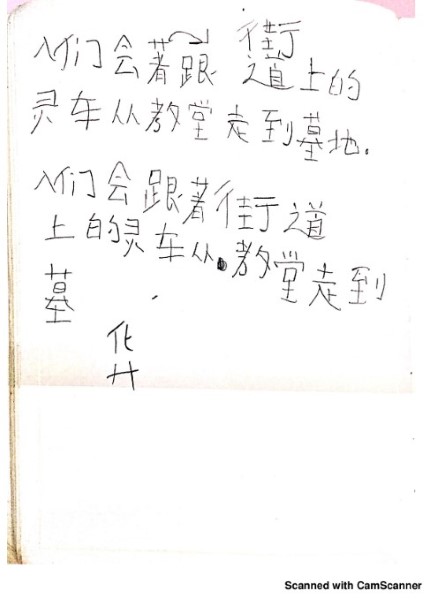 人们会著跟 街道上的
灵车从教堂走到墓地.
人们会跟著街道
上的灵车从教堂走到
墓
化
廾
Scanned with CamScanner